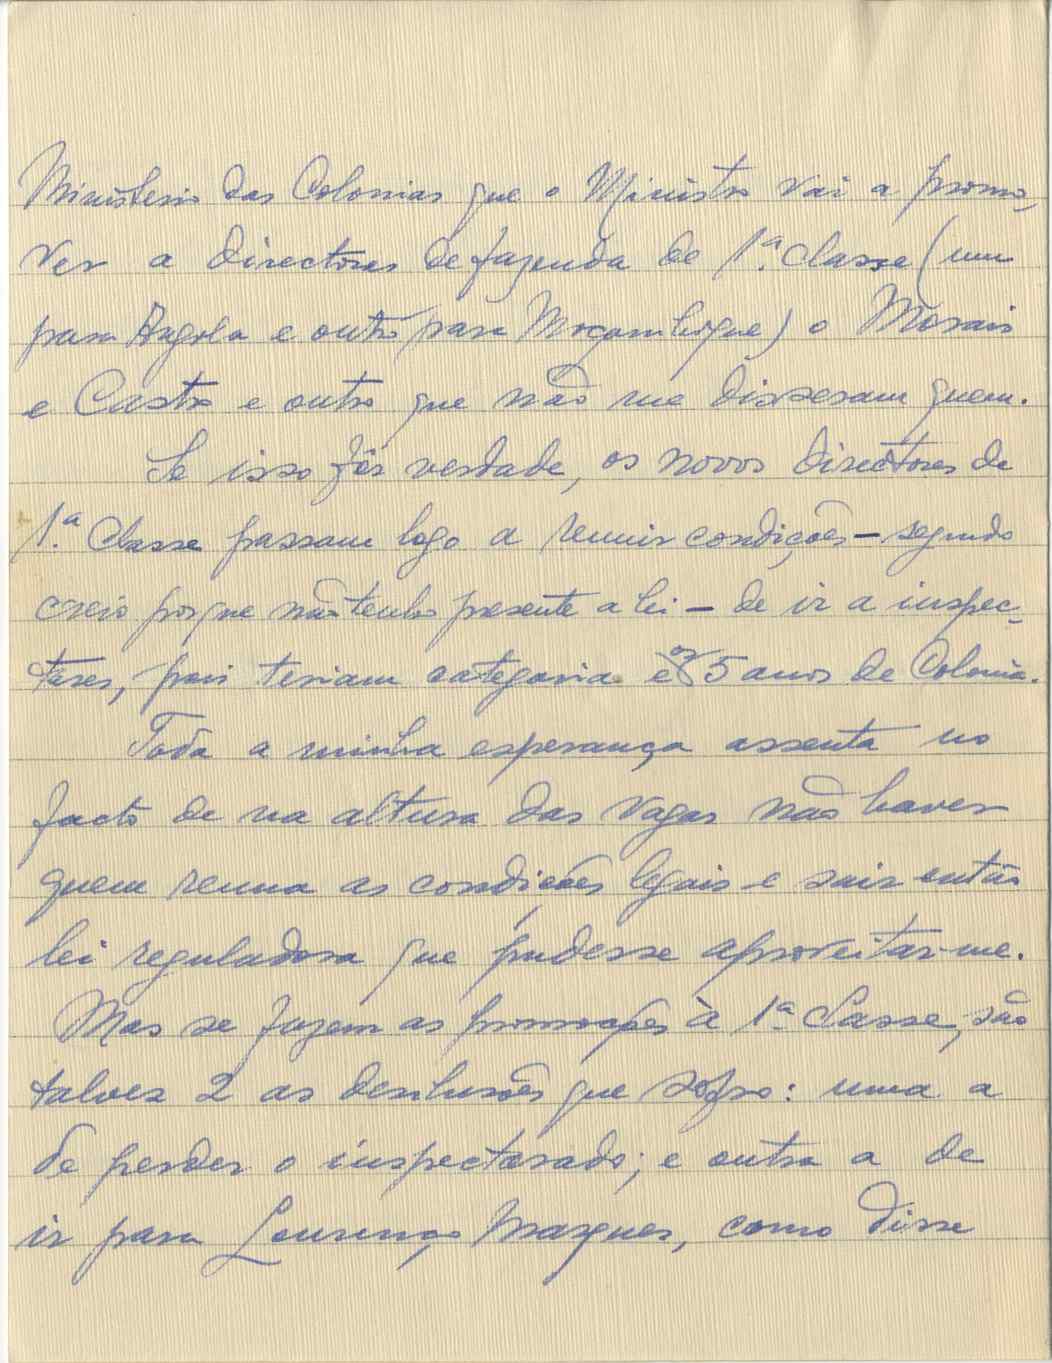 Ministerio das Colonias que o Ministro vai a promo-
ver a directores de fazenda de 1.ª classe (um
para Angola e outro para Moçambique) o Morais
e Castro e outro que não me disseram quem.
Se isso fôr verdade, os novos directores de
1.ª Classe passam logo a reunir condições – segundo
creio porque não tenho presente a lei – de ir a inspec-
tores, pois teriam categoria e os 5 anos de Colonia.
Toda a minha esperança assenta no
facto de na altura das vagas não haver
quem reuna as condições legais e sair então
lei reguladora que pudesse aproveitar-me.
Mas se fazem as promoções à 1ª Classe, são
talvez 2 as desilusões que sofro: uma a
de perder o inspectorado; e outra a de
ir para Lourenço Marques, como disse